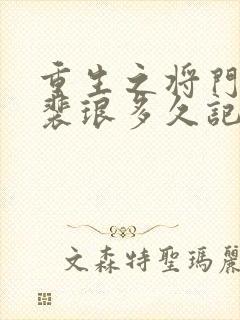 重生之将门
裴琅多久記
文森特聖瑪麗